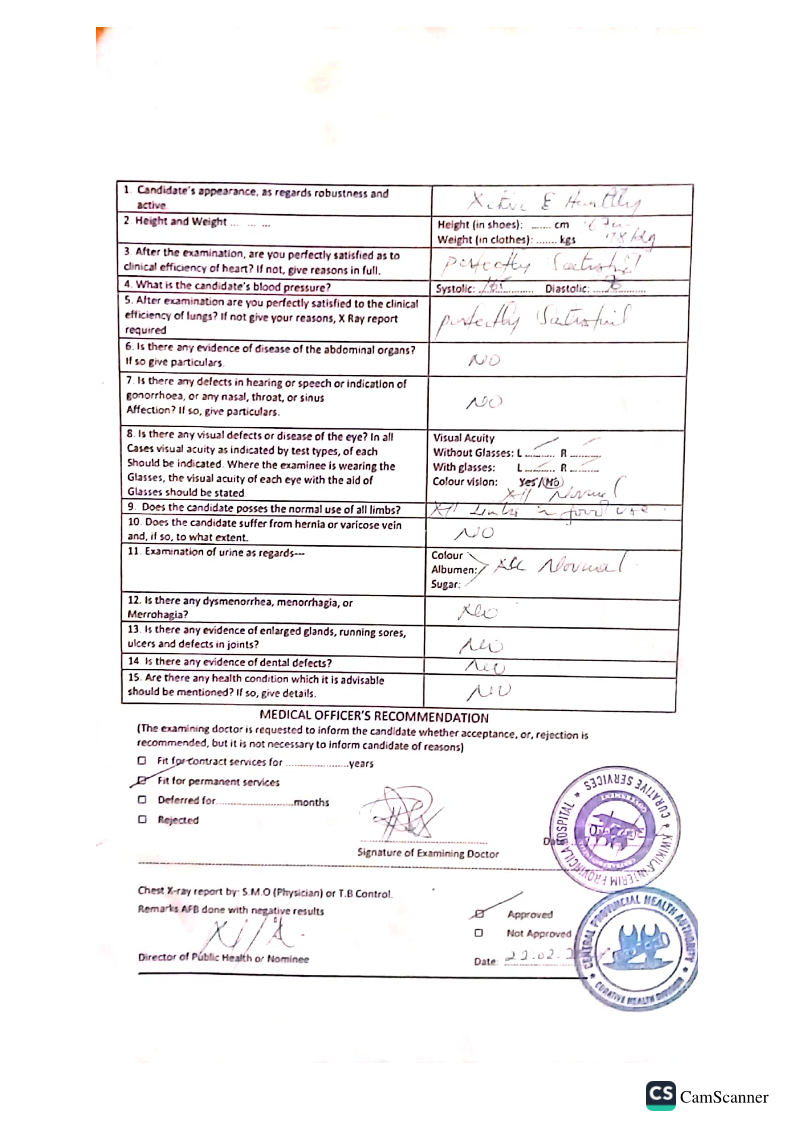 1. Candidate's appearance, as regards robustness and
active
Active & Healthy
2 Height and Weight ... ... ...
Height (in shoes): ...... cm
Weight (in clothes): ....... kgs 78 kg
3 After the examination, are you perfectly satisfied as to
clinical efficiency of heart? If not, give reasons in full.
perfectly
4. What is the candidate's blood pressure?
Systolic: ............... Diastolic: ...............
5. After examination are you perfectly satisfied to the clinical
efficiency of lungs? If not give your reasons, X Ray report
required
perfectly
6. Is there any evidence of disease of the abdominal organs?
If so give particulars.
NO
7. Is there any defects in hearing or speech or indication of
gonorrhoea, or any nasal, throat, or sinus
Affection? If so, give particulars.
NO
8. Is there any visual defects or disease of the eye? In all
Cases visual acuity as indicated by test types, of each
Should be indicated. Where the examinee is wearing the
Glasses, the visual acuity of each eye with the aid of
Glasses should be stated
Visual Acuity
Without Glasses: L .......... R ..........
With glasses: L .......... R ..........
Colour vision: Yes/(No)
All Normal
9. Does the candidate posses the normal use of all limbs?
All Limbs in good use
10. Does the candidate suffer from hernia or varicose vein
and, if so, to what extent.
NO
11. Examination of urine as regards---
Colour
Albumen:
Sugar:
All Normal
12. Is there any dysmenorrhea, menorrhagia, or
Merrohagia?
No
13. Is there any evidence of enlarged glands, running sores,
ulcers and defects in joints?
No
14. Is there any evidence of dental defects?
No
15. Are there any health condition which it is advisable
should be mentioned? If so, give details.
NO
MEDICAL OFFICER'S RECOMMENDATION
(The examining doctor is requested to inform the candidate whether acceptance, or, rejection is
recommended, but it is not necessary to inform candidate of reasons)
Fit for contract services for .....................years
Fit for permanent services
Deferred for.........................months
Rejected
Signature of Examining Doctor
KWIKILA INTERIM PROVINCILA HOSPITAL ★ CURATIVE SERVICES ★
Chest X-ray report by: S.M.O (Physician) or T.B Control.
Remarks AFB done with negative results
Approved
Not Approved
Director of Public Health or Nominee
Date: 22.02.
CENTRAL PROVINCIAL HEALTH AUTHORITY
★ CURATIVE HEALTH DIVISION ★
CS CamScanner